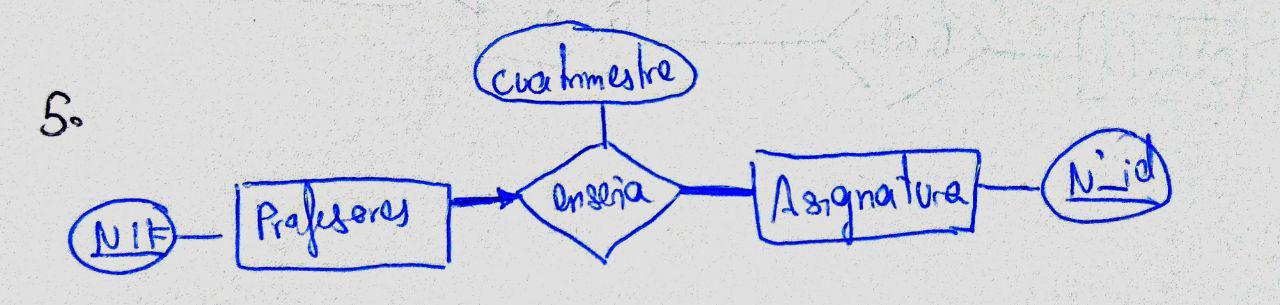 cuatrimestre
5.
NIF
Profesores
enseña
Asignatura
N_id